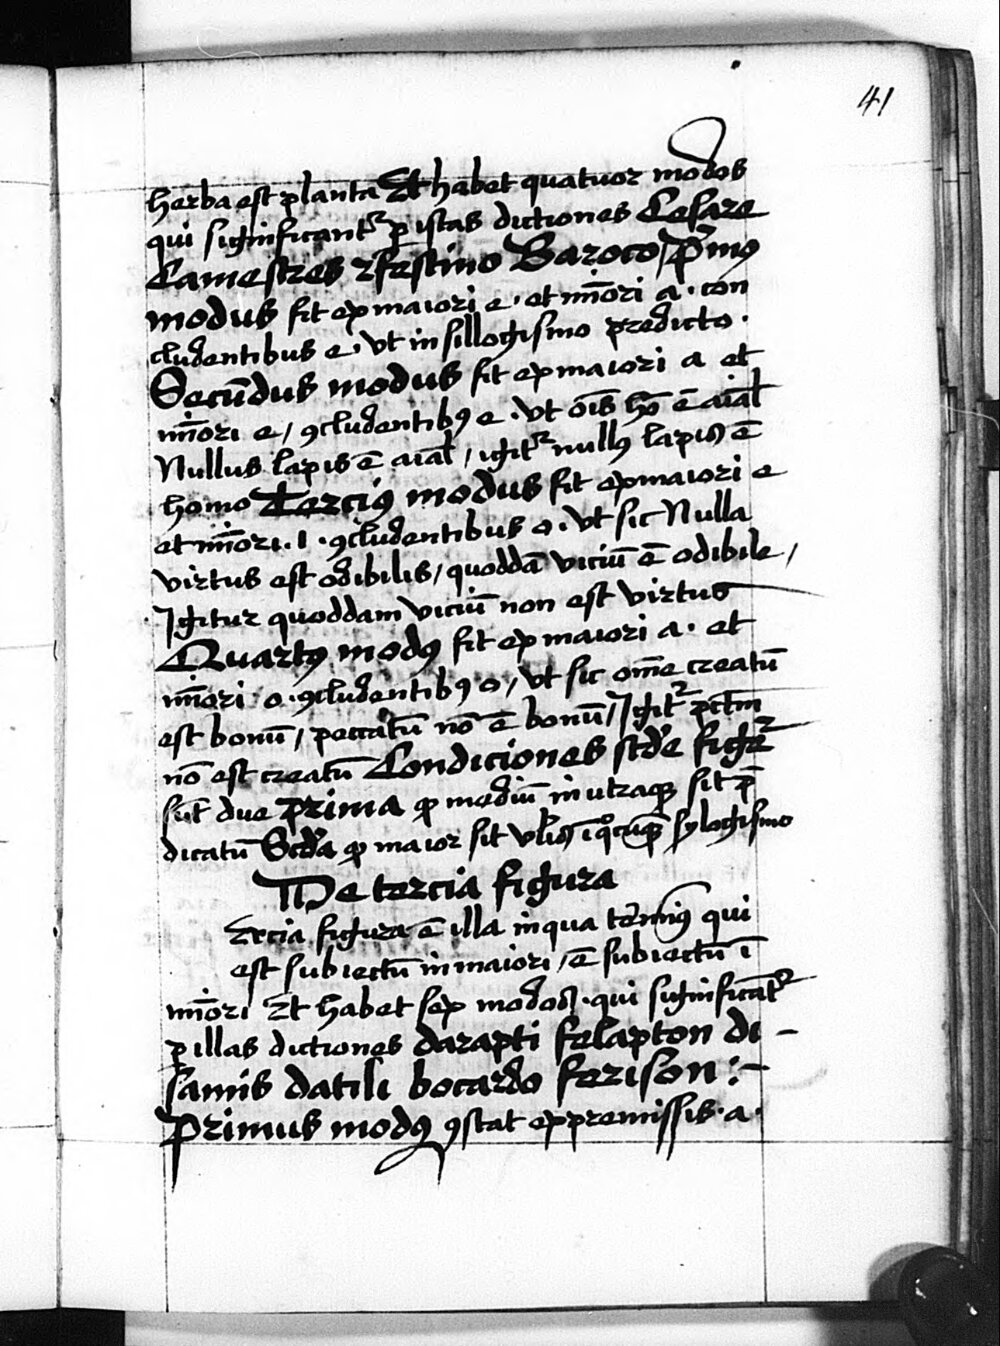 41
herba est planta Et habet quatuor modos
qui significantᷣ ꝑ istas dictiones Cesare
Camestres festino Baroco / P̄mꝰ
modus fit ex maiori e · et mi̅ori a · con
cludentibus e · vt in sillogismo predicto ·
Secu̅dus modus fit ex maiori a et
mi̅ori e / ꝯcludentibꝰ e · vt o̅is ho̅ e̅ aial̅
Nullus lapis e̅ aial̅ / igitᷣ nullꝰ lapis e̅
homo Terciꝰ modus fit ex maiori e
et mi̅ori · i · ꝯcludentibus o · vt sic Nulla
virtus est odibilis / quodda̅ viciu̅ e̅ odibile /
Igitur quoddam viciu̅ non est virtus
Quartꝰ modꝰ fit ex maiori a · et
mi̅ori · o · ꝯcludentibꝰ o / vt sic om̅e creatu̅
est bonu̅ / peccatu̅ no̅ e̅ bonu̅ / Igitᷣ pctm̅
no̅ est creatu̅ Condiciones scd̅e figᷣe
su̅t due Prima ꝙ mediu̅ in utraqꝫ sit p̅
dicatu̅ Scd̅a ꝙ maior sit vl̅is i̅ sylogismo
De tercia figura
Ercia figura e̅ illa in qua te̅rminꝰ qui
est subiectu̅ in maiori / e̅ subiectu̅ i̅
mi̅ori Et habet sex modos · qui significa̅tᷣ
ꝑ illas dictiones darapti felapton di -
samis datisi bocardo ferison :-
Primus modꝰ ꝯstat ex premissis · a ·